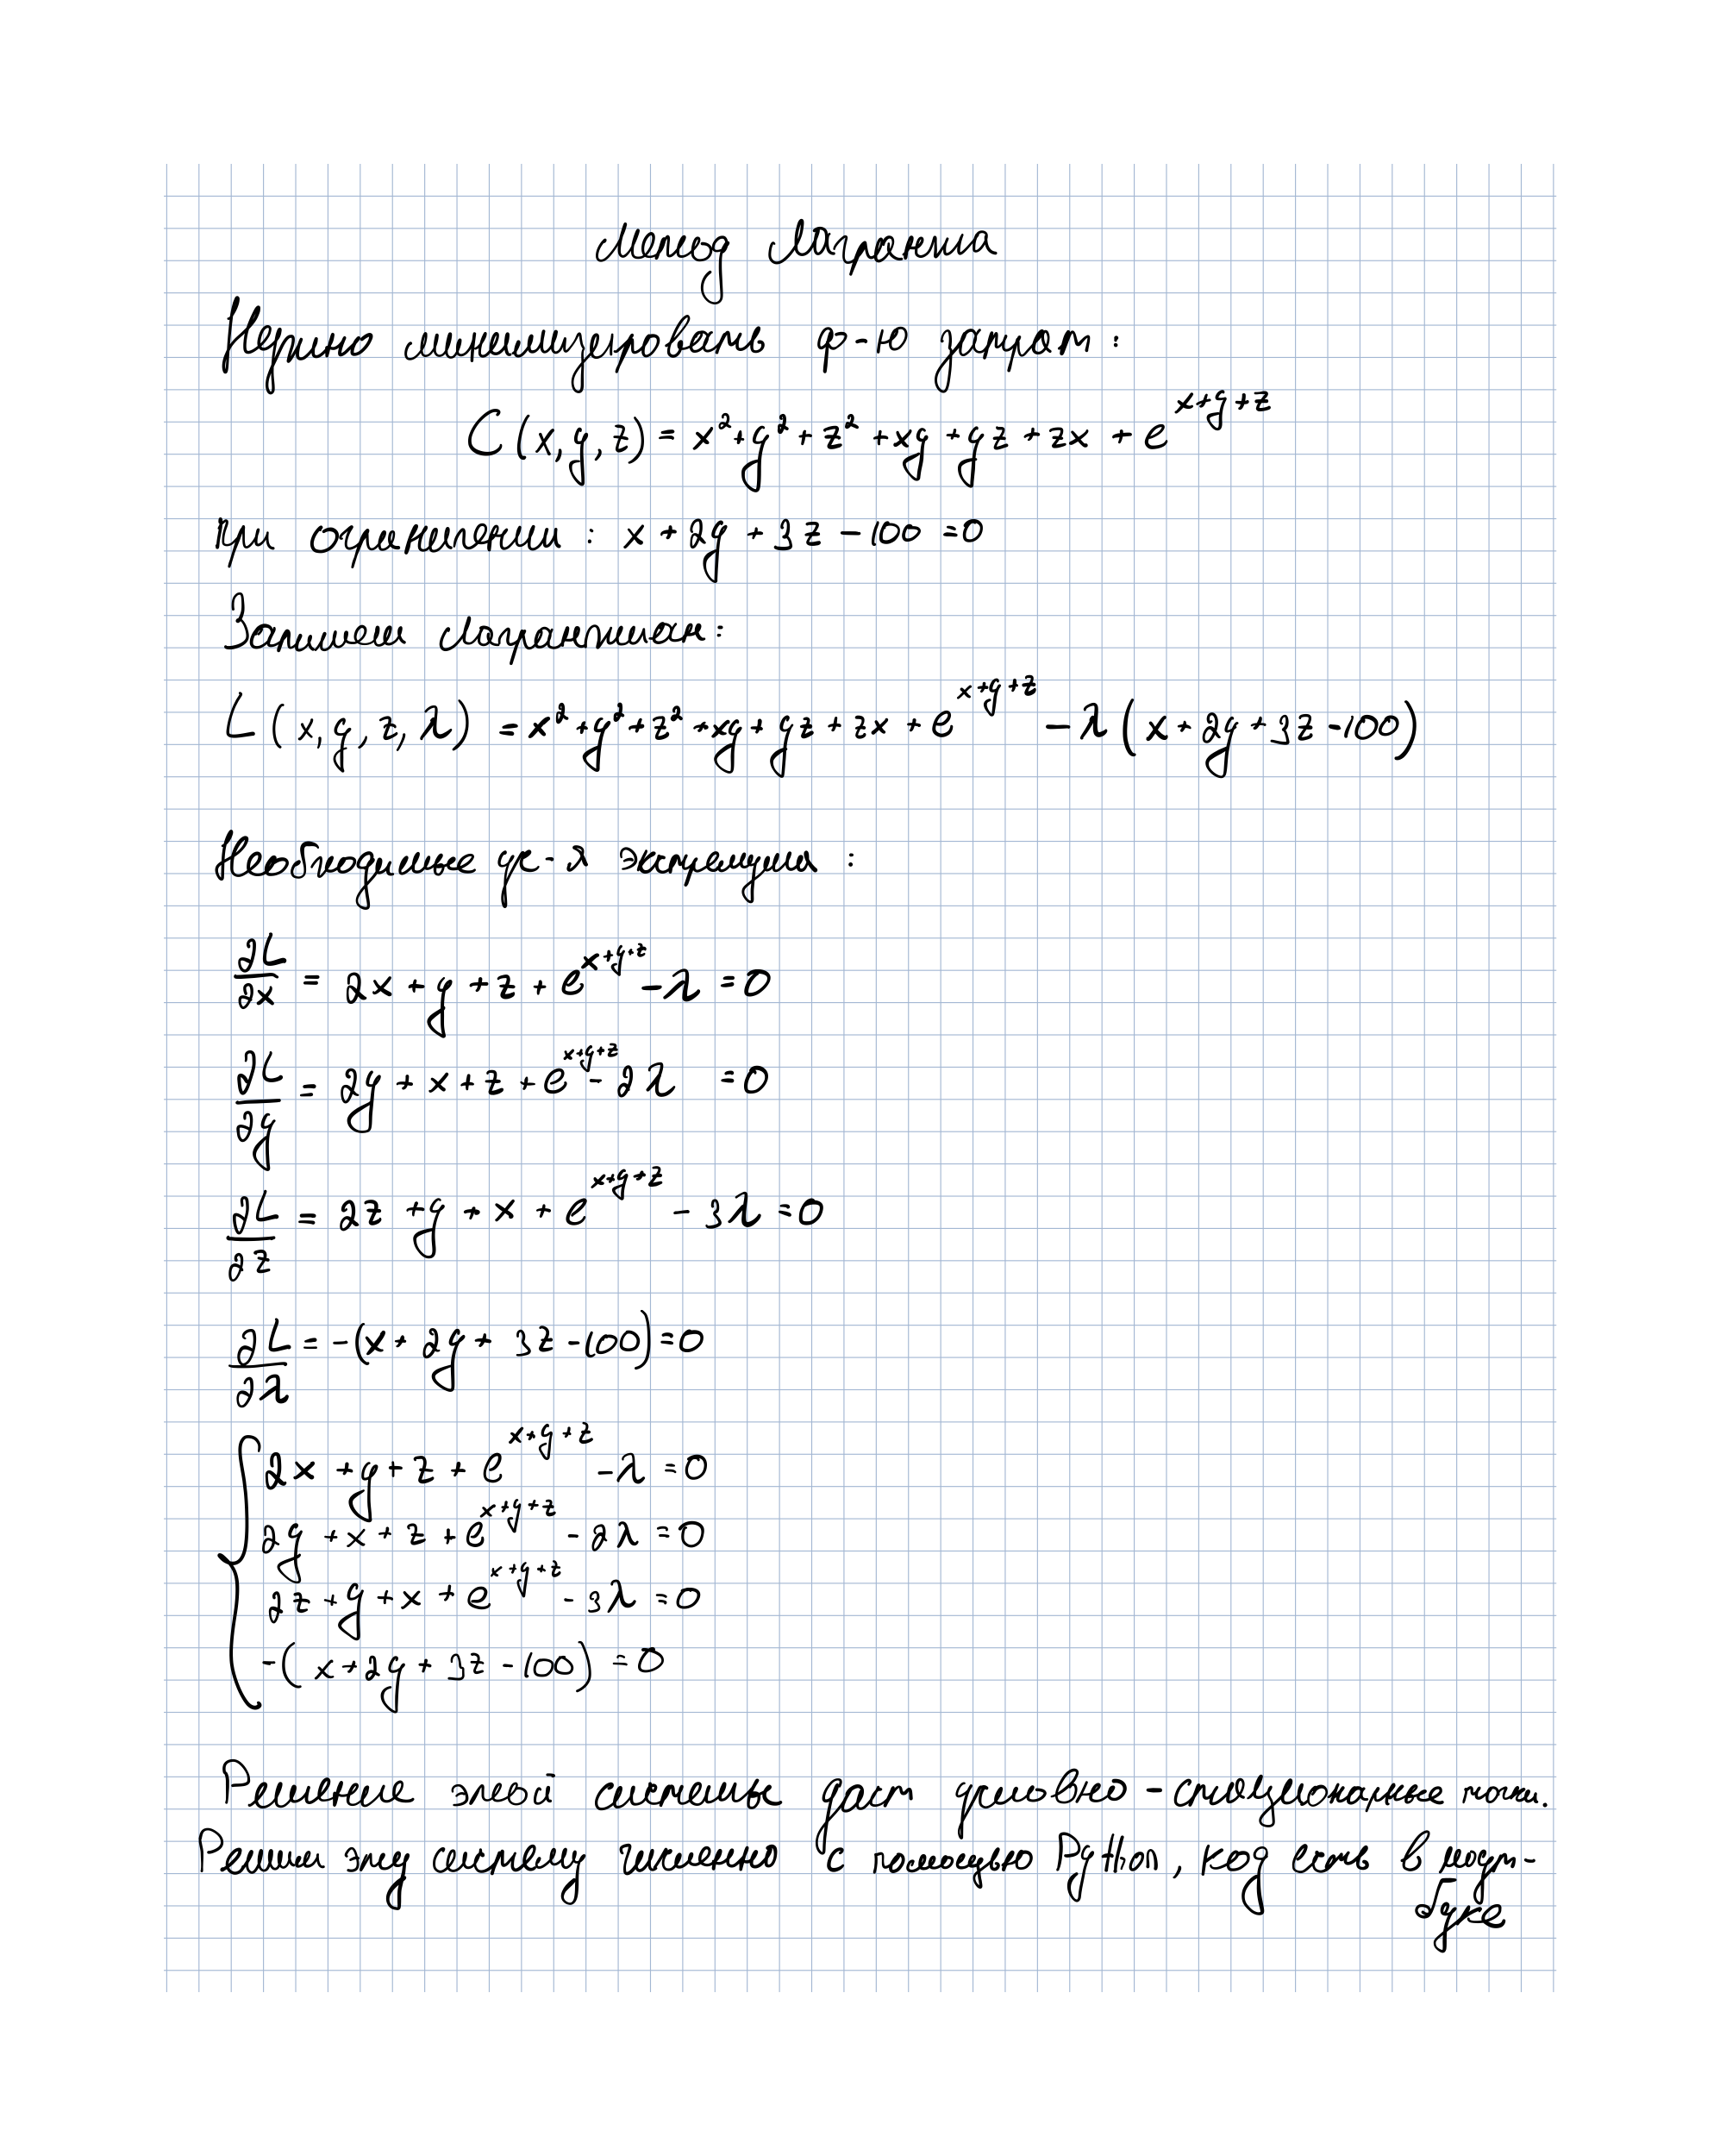 Метод Лагранжа
Нужно минимизировать ф-ю затрат:
C(x,y,z) = x² + y² + z² + xy + yz + zx + e^{x+y+z}
при ограничении: x + 2y + 3z - 100 = 0
Запишем Лагранжиан:
L(x,y,z,λ) = x² + y² + z² + xy + yz + zx + e^{x+y+z} - λ(x + 2y + 3z - 100)
Необходимые ус-я экстремума:
∂L/∂x = 2x + y + z + e^{x+y+z} - λ = 0
∂L/∂y = 2y + x + z + e^{x+y+z} - 2λ = 0
∂L/∂z = 2z + y + x + e^{x+y+z} - 3λ = 0
∂L/∂λ = -(x + 2y + 3z - 100) = 0
{ 2x + y + z + e^{x+y+z} - λ = 0
2y + x + z + e^{x+y+z} - 2λ = 0
2z + y + x + e^{x+y+z} - 3λ = 0
-(x + 2y + 3z - 100) = 0
Решение этой системы даст условно-стационарные точки.
Решим эту систему численно с помощью Python, код есть в ноут-
буке